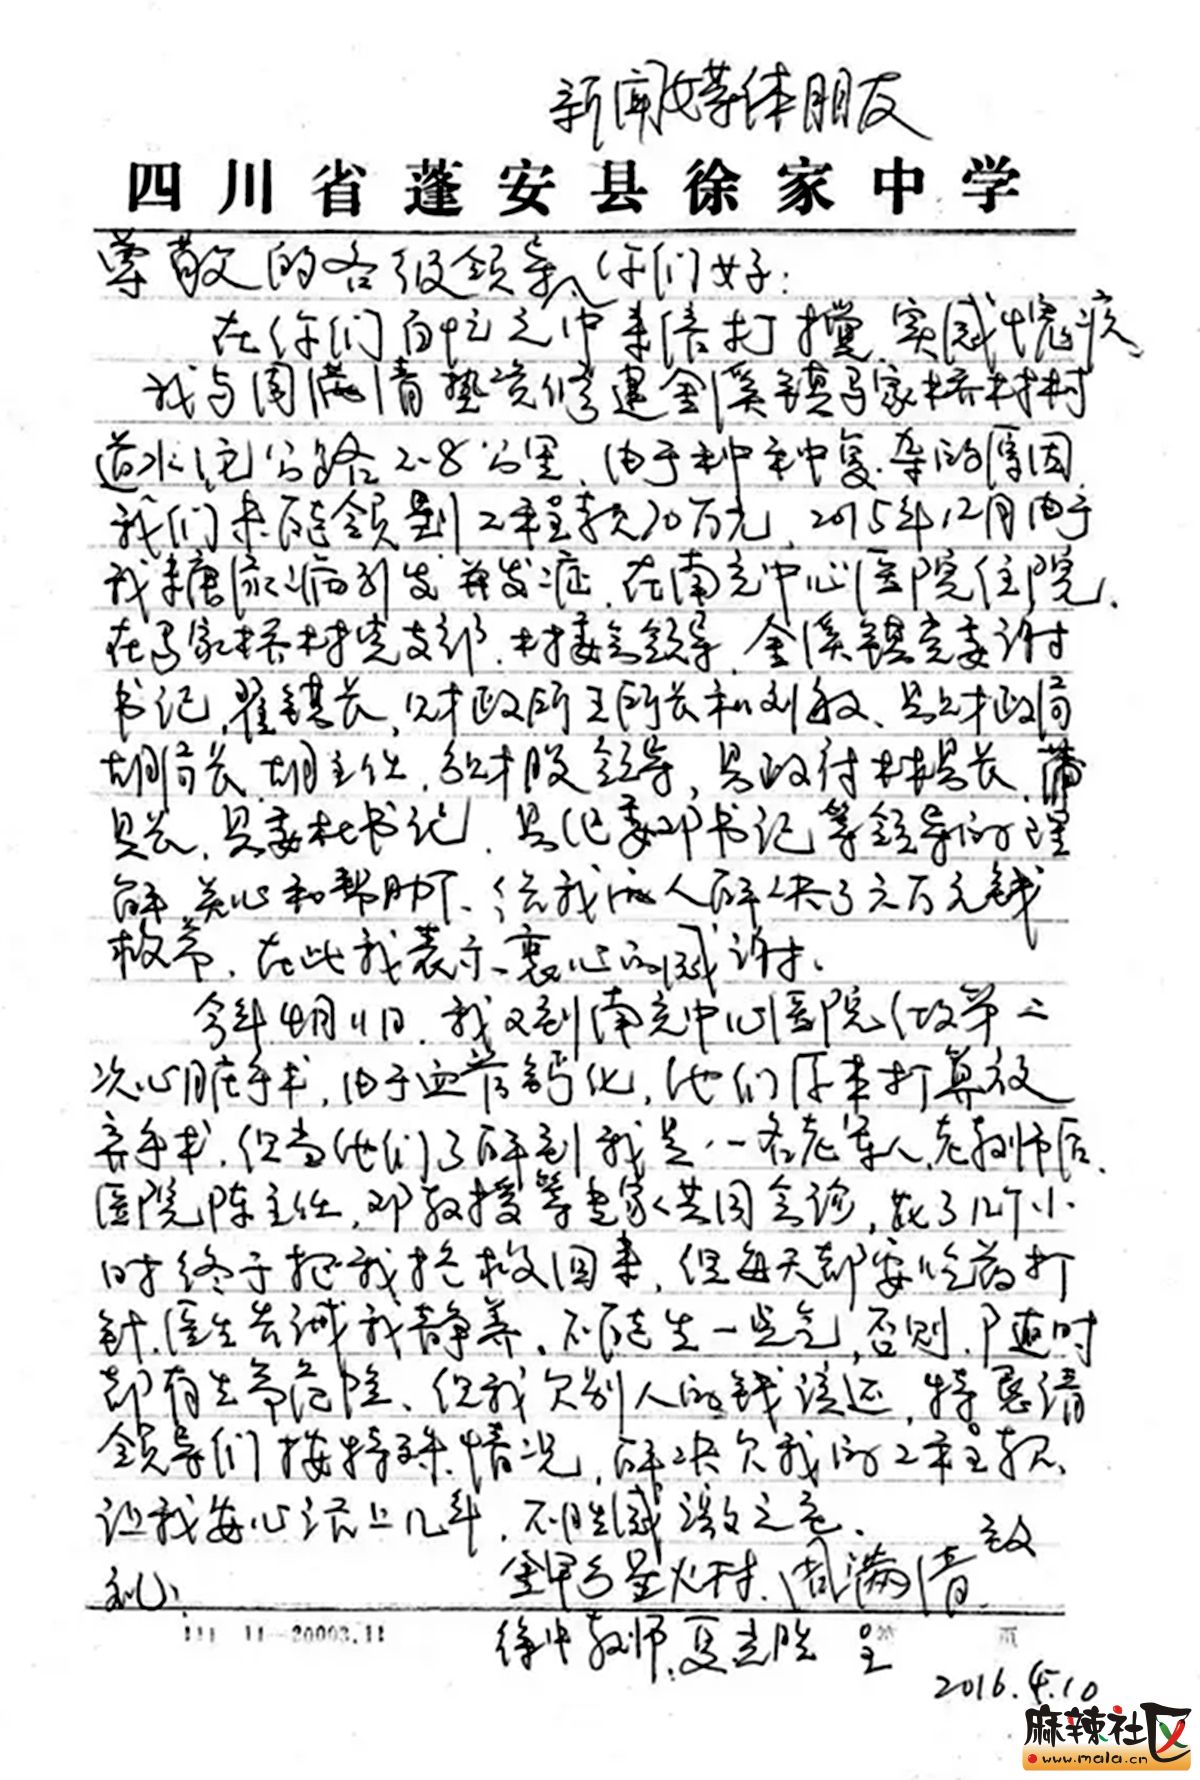 新闻媒体朋友
四川省蓬安县徐家中学
尊敬的各级领导、你们好：
在你们百忙之中来信打搅，实感愧疚、
我与周满清垫资修建金溪镇马家桥村村
道水泥公路2.8公里，由于种种复杂的原因
我们未能领到工程款70万元，2015年12月由于
我糖尿病引发并发症，在南充中心医院住院、
在马家桥村党支部、村委会领导，金溪镇党委谢
书记，翟镇长，财政所王所长和刘敏、县财政局
胡局长、胡主任，农财股领导，县政府林县长、蒲
县长，县委杜书记，县纪委邓书记等领导的理
解、关心和帮助下、给我两人解决了六万元钱
救命，在此我表示衷心的感谢。
今年4月11日，我又到南充中心医院做第二
次心脏手术，由于血管钙化，他们原来打算放
弃手术，但当他们了解到我是一名老军人、老教师后、
医院陈主任，邓教授等专家共同会诊，花了几个小
时终于把我抢救回来，但每天都要吃药打
针，医生告诫我静养，不能生一点气，否则，随时
都有生命危险、但我欠别人的钱该还，特恳请
领导们按特殊情况，解决欠我的工程款、
让我安心活上几年，不胜感激之至、
致
礼！
金甲乡星火村、周满清
徐中教师、夏光胜 呈
111 11-20003.11
页
2016.4.10
麻辣社区
www.mala.cn